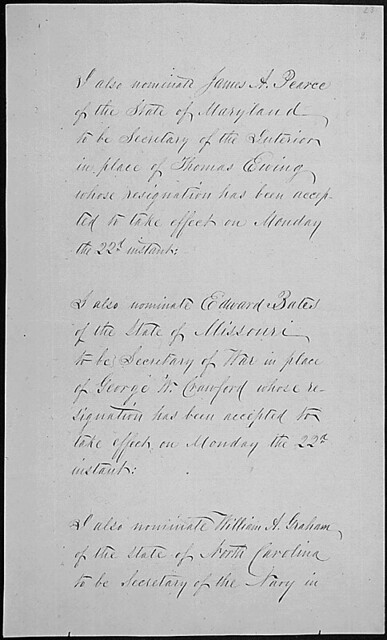 I also nominate James A. Pearce
of the State of Maryland
to be Secretary of the Interior
in place of Thomas Ewing
whose resignation has been accep-
ted to take effect on Monday
the 22d instant:
I also nominate Edward Bates
of the State of Missouri
to be Secretary of War in place
of George W. Crawford whose re-
signation has been accepted to
take effect on Monday the 22d
instant:
I also nominate William A. Graham
of the State of North Carolina
to be Secretary of the Navy in